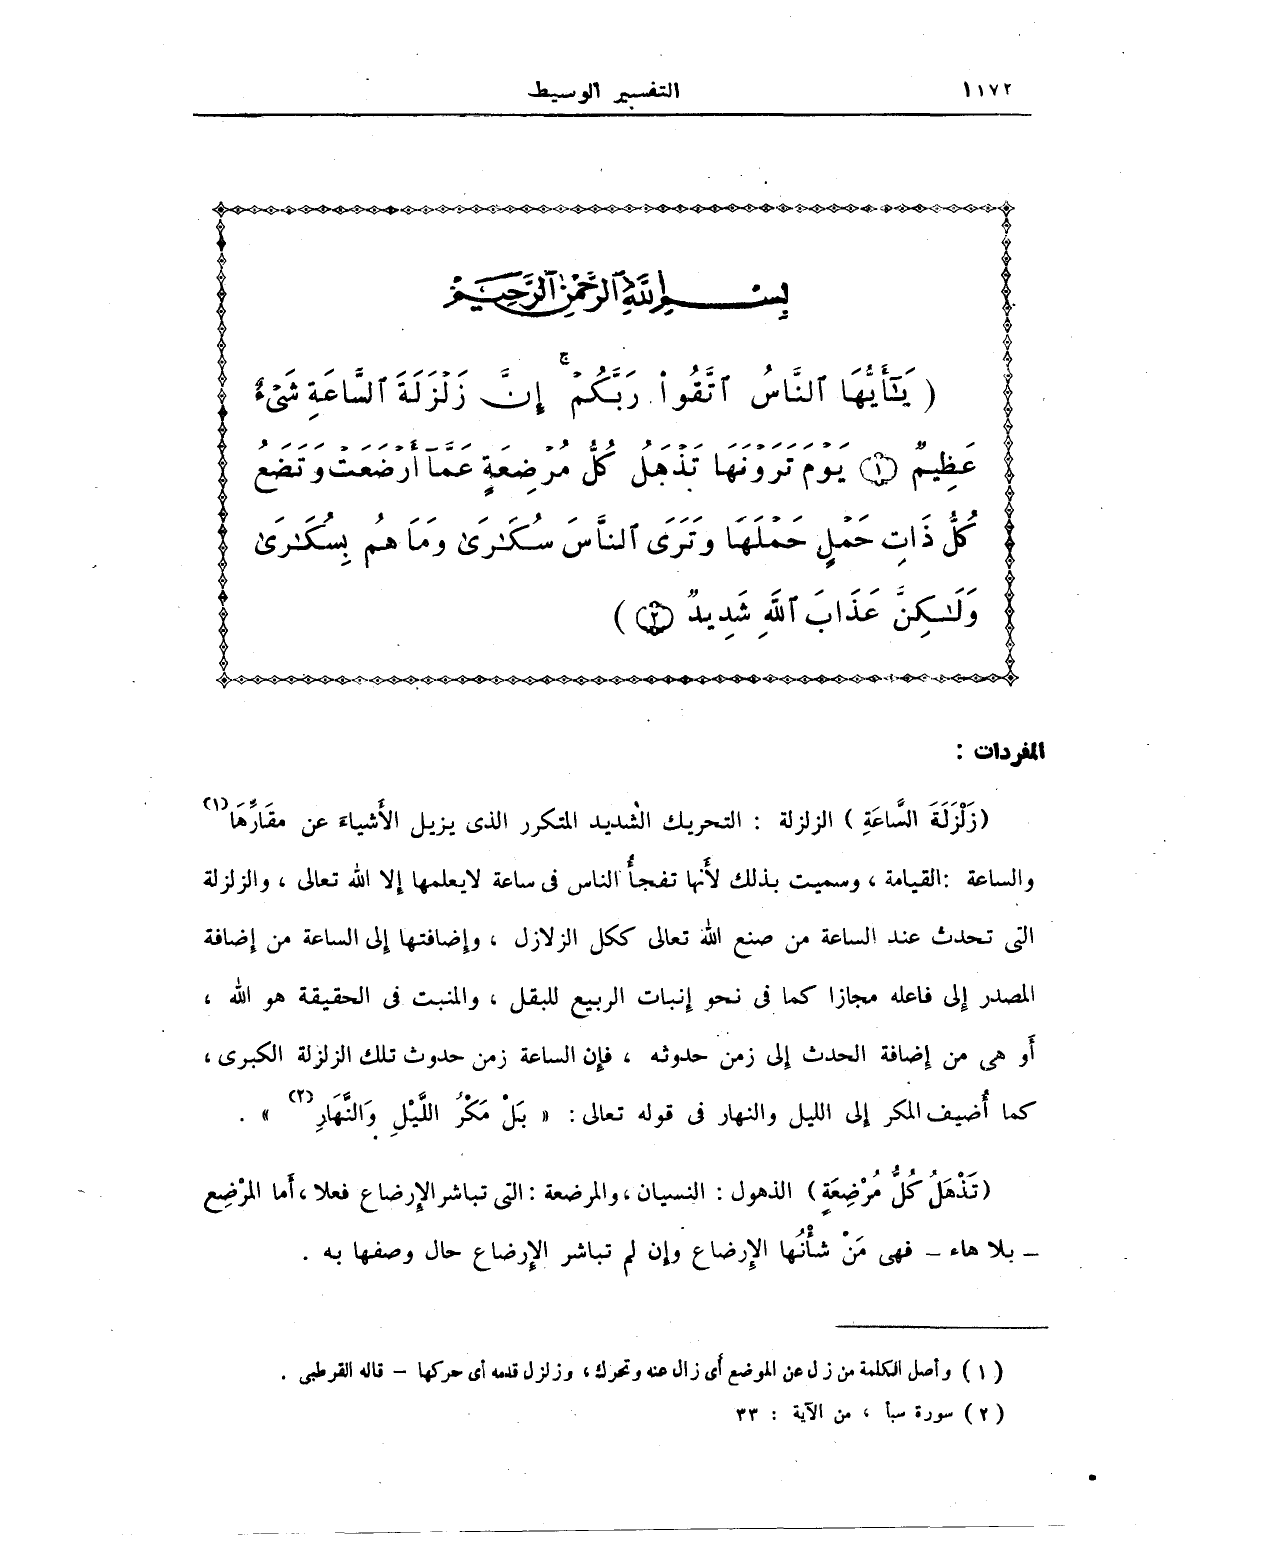 ١١٧٢
التفسير الوسيط
بِسْمِ اللَّهِ الرَّحْمَٰنِ الرَّحِيمِ
( يَٰٓأَيُّهَا ٱلنَّاسُ ٱتَّقُوا۟ رَبَّكُمْ ۚ إِنَّ زَلْزَلَةَ ٱلسَّاعَةِ شَىْءٌ
عَظِيمٌ ۝١ يَوْمَ تَرَوْنَهَا تَذْهَلُ كُلُّ مُرْضِعَةٍ عَمَّآ أَرْضَعَتْ وَتَضَعُ
كُلُّ ذَاتِ حَمْلٍ حَمْلَهَا وَتَرَى ٱلنَّاسَ سُكَٰرَىٰ وَمَا هُم بِسُكَٰرَىٰ
وَلَٰكِنَّ عَذَابَ ٱللَّهِ شَدِيدٌ ۝٢ )
المفردات :
(زَلْزَلَةَ السَّاعَةِ ) الزلزلة : التحريك الشديد المتكرر الذى يزيل الأشياء عن مقَارِّهَا(١)
والساعة :القيامة ، وسميت بذلك لأنها تفجأُ الناس فى ساعة لايعلمها إلا الله تعالى ، والزلزلة
التى تحدث عند الساعة من صنع الله تعالى ككل الزلازل ، وإضافتها إلى الساعة من إضافة
المصدر إلى فاعله مجازا كما فى نحو إنبات الربيع للبقل ، والمنبت فى الحقيقة هو الله ،
أو هى من إضافة الحدث إلى زمن حدوثه ، فإن الساعة زمن حدوث تلك الزلزلة الكبرى ،
كما أُضيف المكر إلى الليل والنهار فى قوله تعالى : « بَلْ مَكْرُ اللَّيْلِ وَالنَّهَارِ(٢) » .
(تَذْهَلُ كُلُّ مُرْضِعَةٍ ) الذهول : النسيان ، والمرضعة : التى تباشر الإرضاع فعلا ، أما المرْضِع
ـ بلا هاء ـ فهى مَنْ شأْنُها الإرضاع وإن لم تباشر الإرضاع حال وصفها به .
( ١ ) وأصل الكلمة من زل عن الموضع أى زال عنه وتحرك ، وزلزل قدمه أى حركها – قاله القرطبى .
( ٢ ) سورة سبأ ، من الآية : ٣٣